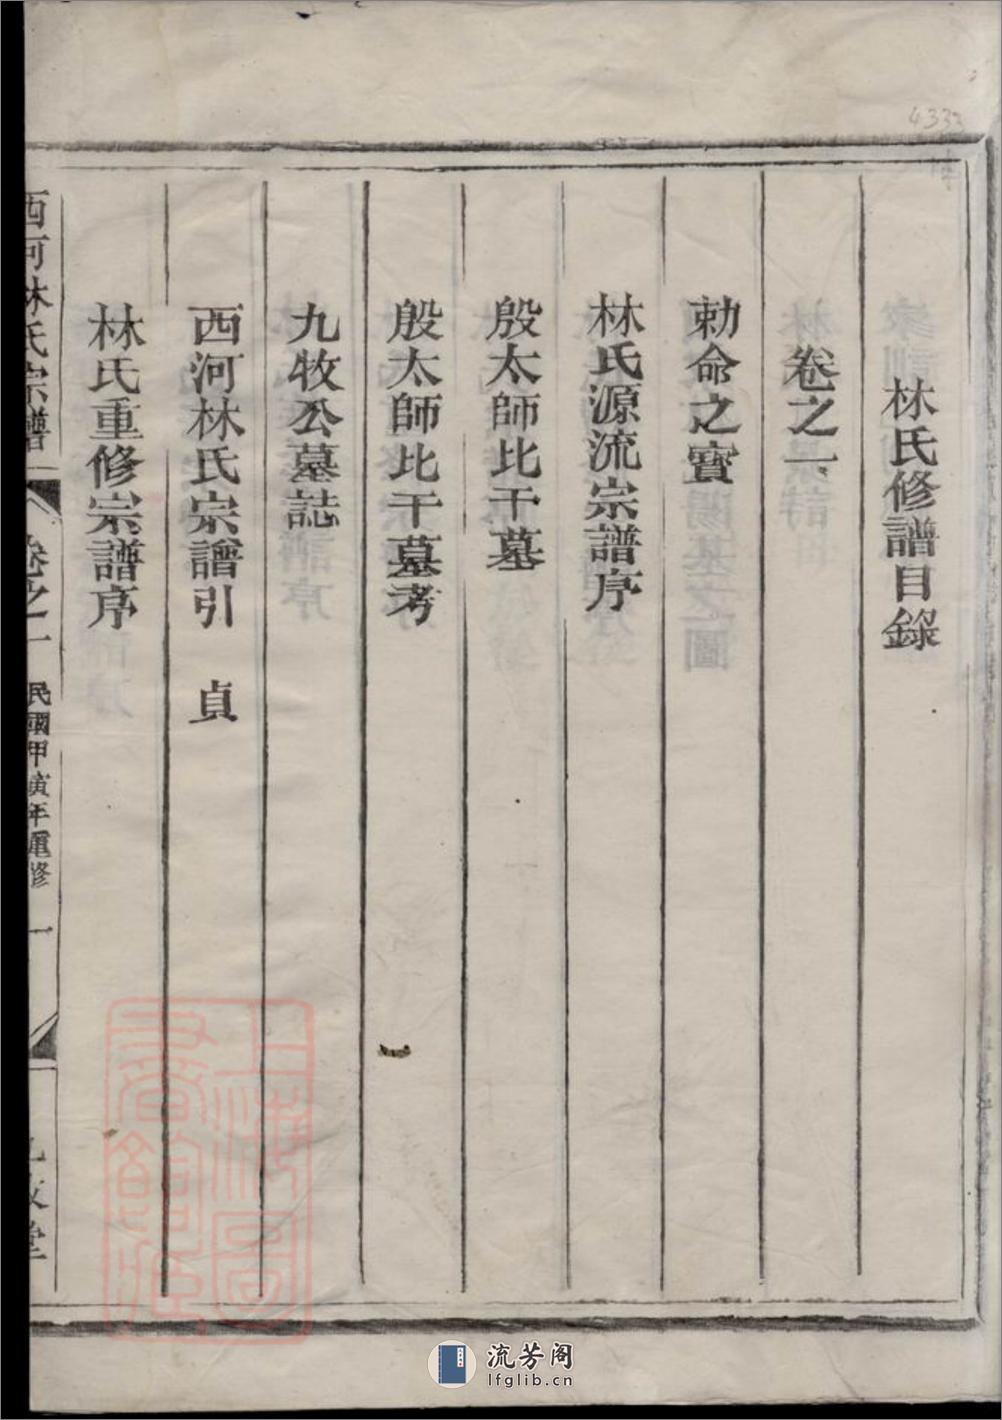 4333
林氏修譜目錄
卷之一
勅命之寶
林氏源流宗譜序
殷太師比干墓
殷太師比干墓考
九牧公墓誌
西河林氏宗譜引 貞
林氏重修宗譜序
西河林氏宗譜 卷之一 民國甲寅年重修 一 九牧堂
上海圖書館藏
流芳阁
lfglib.cn